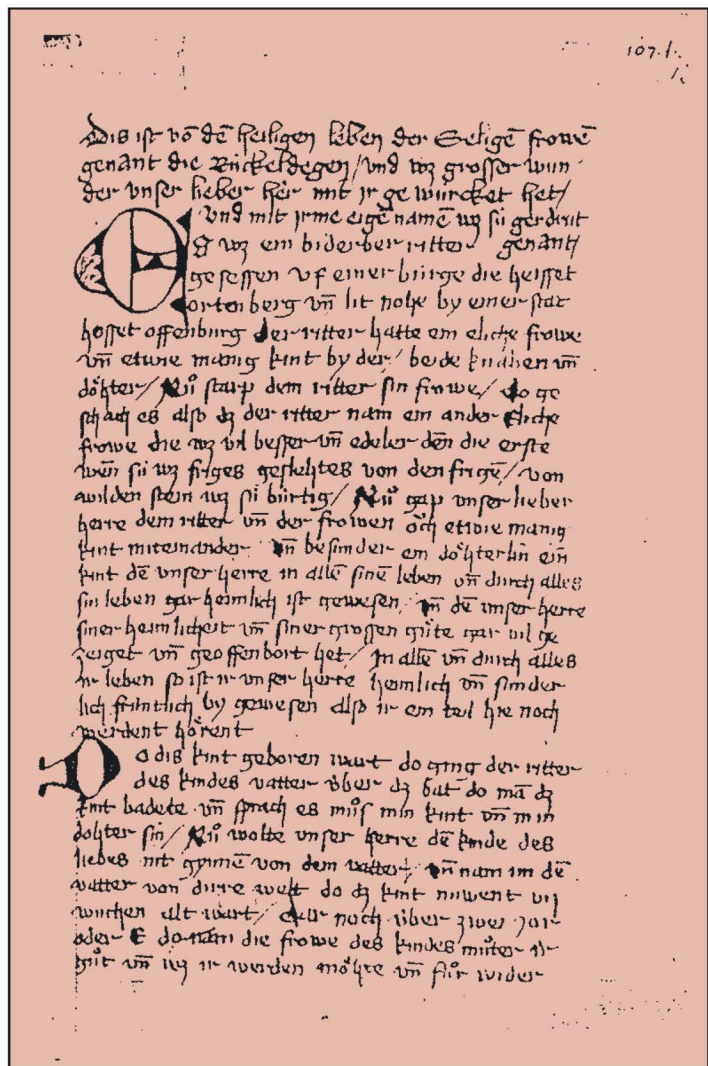 107.1.
1.
Dis ist vō dē heiligen leben der Seligē frowē
genant die Rückeldegen / vnd wz grosser wun
der vnser lieber her mit jr ge würcket het /
vnd mit jrme eigē namē wz sü gerdrut
genant /
Es wz ein biderber ritter
gesessen vf einer bürge die heisset
ortenberg vn̄ lit nohe by einer stat
heisset offenburg der ritter hatte ein eliche frowe
vn̄ etwie manig kint by der / beide knaben vn̄
döhter / Nů starp dem ritter sin frowe / do ge
schach es also dz der ritter nam ein ander Eliche
frowe die wz vil besser vn̄ edeler dēn die erste
wēn sü wz friges geslehtes von den frigē / von
wilden stein wz sü bürtig / Nů gap vnser lieber
herre dem ritter vn̄ der frowen öch etwie manig
kint miteinander vn̄ besunder ein döhterlin ein
kint dē vnser herre in allē sinē leben vn̄ durch alles
sin leben gar heimlich ist gewesen / vn̄ dē vnser herre
siner heimlicheit vn̄ siner grossen güte gar vil ge
zeiget vn̄ geoffenbort het / In allē vn̄ durch alles
ir leben so ist ir vnser herre heimlich vn̄ sunder
lich frúntlich by gewesen also ir ein teil hie noch
werdent hörent
Do dis kint geboren wart do ging der ritter
des kindes vatter über dz bat do mā dz
kint badete vn̄ sprach es můs min kint vn̄ min
dohter sin / Nů wolte vnser herre dē kinde des
liebes nit gunnē von dem vatter / vn̄ nam im dē
vatter von dirre welt do dz kint nuwent vij
wuchen alt wart / Dar noch über zwei jor
oder E do nam die frowe des kindes můter ir
gůt vn̄ wz ir werden möhte vn̄ fůr wider